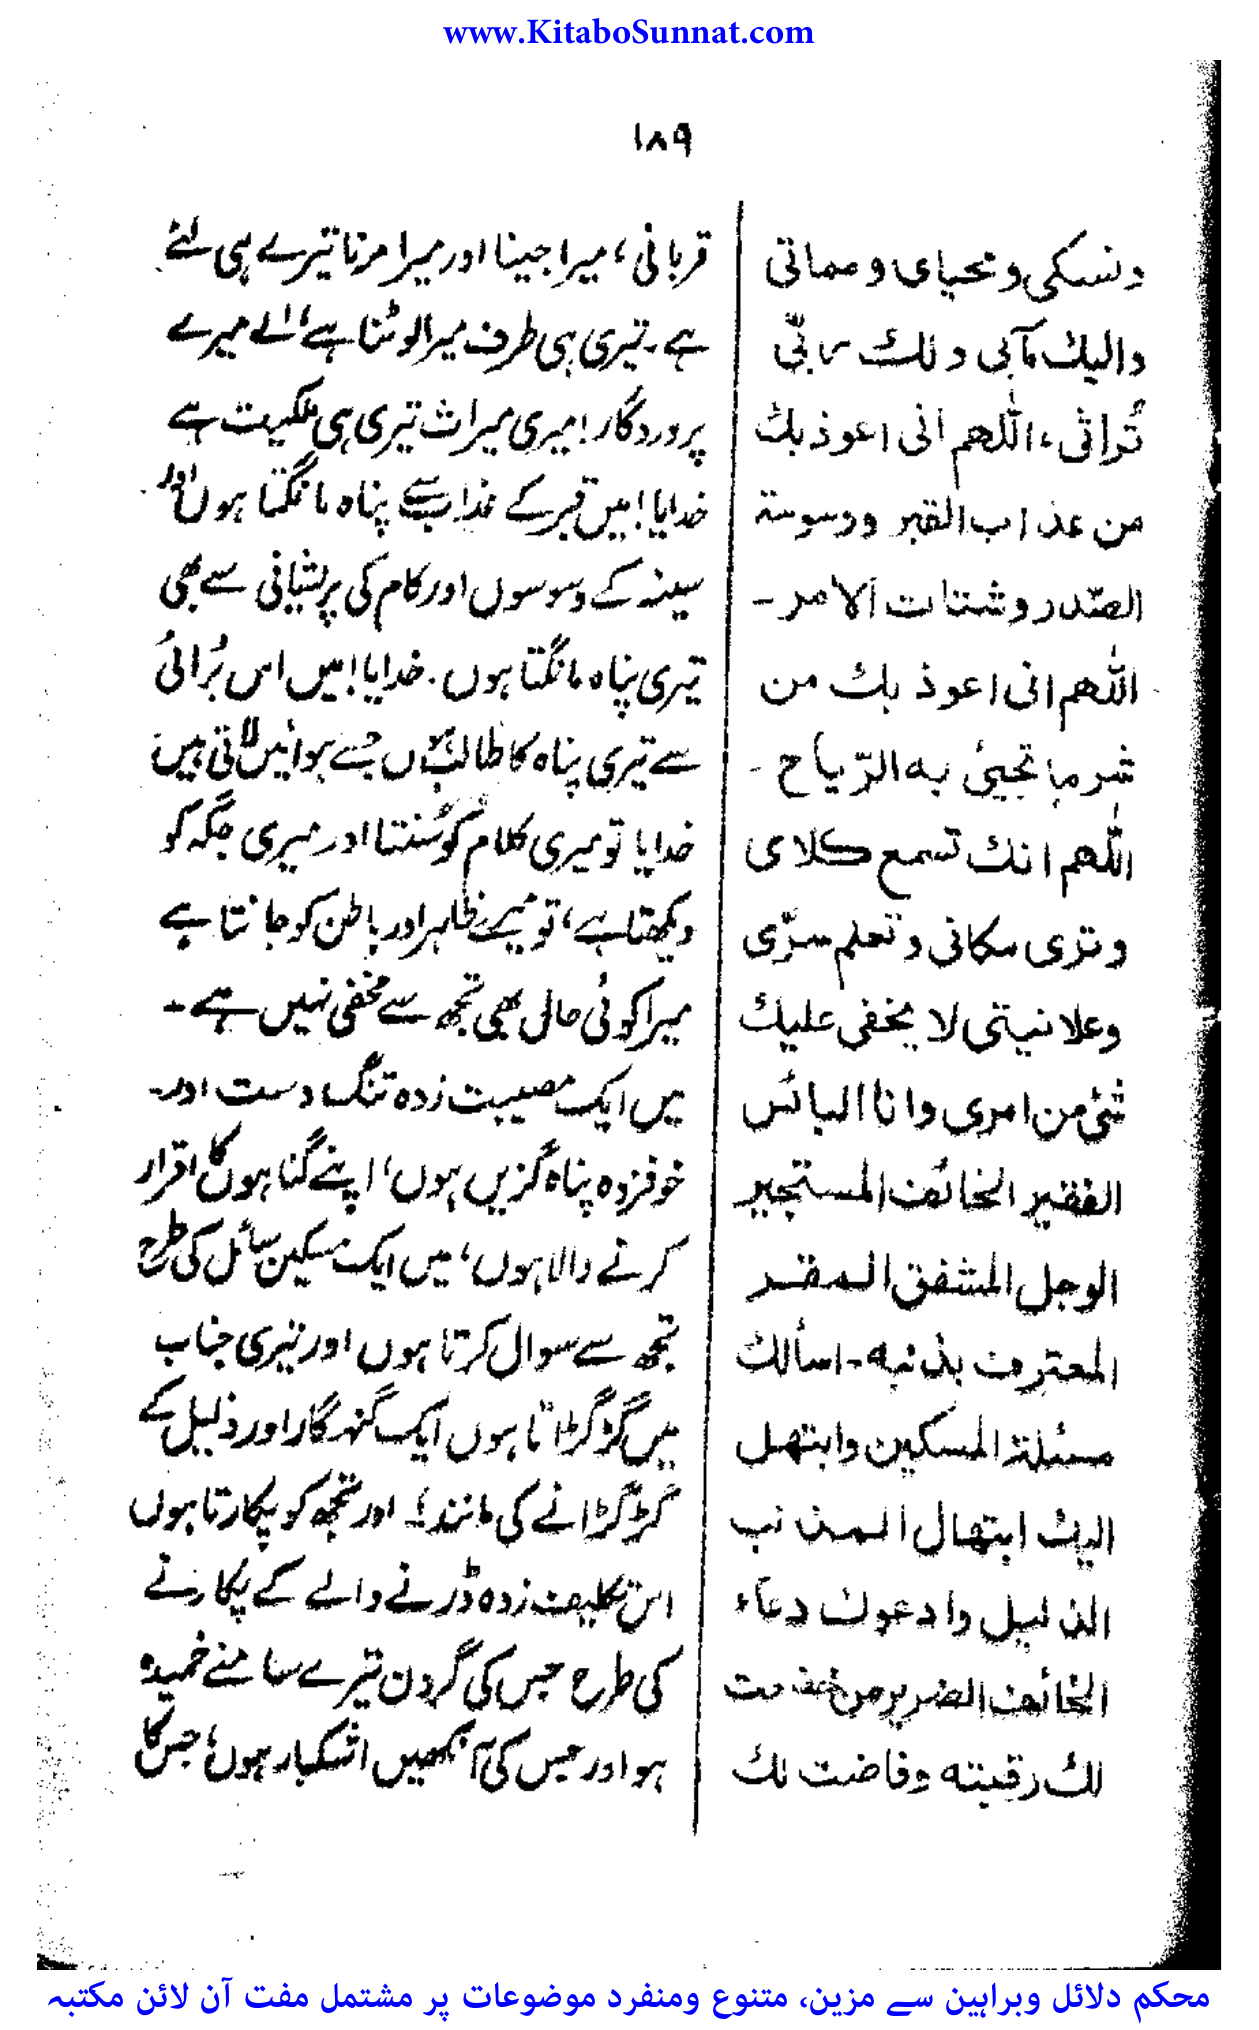 www.KitaboSunnat.com
۱۸۹
ونسكی و محیای و مماتی
والیك مآبی ولك ربّی
تُراثی، اللّٰهم انی اعوذ بك
من عذاب القبر ووسوسة
الصّدر وشتات الامر۔
اللّٰهم انی اعوذ بك من
شر ما تجیئ به الرّیاح۔
اللّٰهم انك تسمع كلامی
وتری مكانی وتعلم سرّی
وعلانیتی لا یخفی علیك
شئ من امری وانا البائس
الفقیر الخائف المستجیر
الوجل المشفق المقر
المعترف بذنبه۔ اسألك
مسئلة المسكین وابتهل
الیك ابتهال المذنب
الذلیل وادعوك دعاء
الخائف الضریر من خضعت
لك رقبته وفاضت لك
قربانی، میرا جینا اور میرا مرنا تیرے ہی لئے
ہے۔ تیری ہی طرف میرا لوٹنا ہے، اے میرے
پروردگار! میری میراث تیری ہی ملکیت ہے
خدایا! میں قبر کے عذاب سے پناہ مانگتا ہوں اور
سینہ کے وسوسوں اور کام کی پریشانی سے بھی
تیری پناہ مانگتا ہوں۔ خدایا! میں اس بُرائی
سے تیری پناہ کا طالب ہوں جسے ہوائیں لاتی ہیں
خدایا تو میری کلام کو سُنتا اور میری جگہ کو
دیکھتا ہے، تو میرے ظاہر اور باطن کو جانتا ہے
میرا کوئی حال بھی تجھ سے مخفی نہیں ہے۔
میں ایک مصیبت زدہ تنگ دست اور۔
خوفزدہ پناہ گزیں ہوں، اپنے گناہوں کا اقرار
کرنے والا ہوں، میں ایک مسکین سائل کی طرح
تجھ سے سوال کرتا ہوں اور تیری جناب
میں گڑگڑاتا ہوں ایک گنہگار اور ذلیل کے
گڑگڑانے کی مانند! اور تجھ کو پکارتا ہوں
اس تکلیف زدہ ڈرنے والے کے پکارنے
کی طرح جس کی گردن تیرے سامنے خمیدہ
ہو اور جس کی آنکھیں اشکبار ہوں، جس کا
محکم دلائل وبراہین سے مزین، متنوع ومنفرد موضوعات پر مشتمل مفت آن لائن مکتبہ